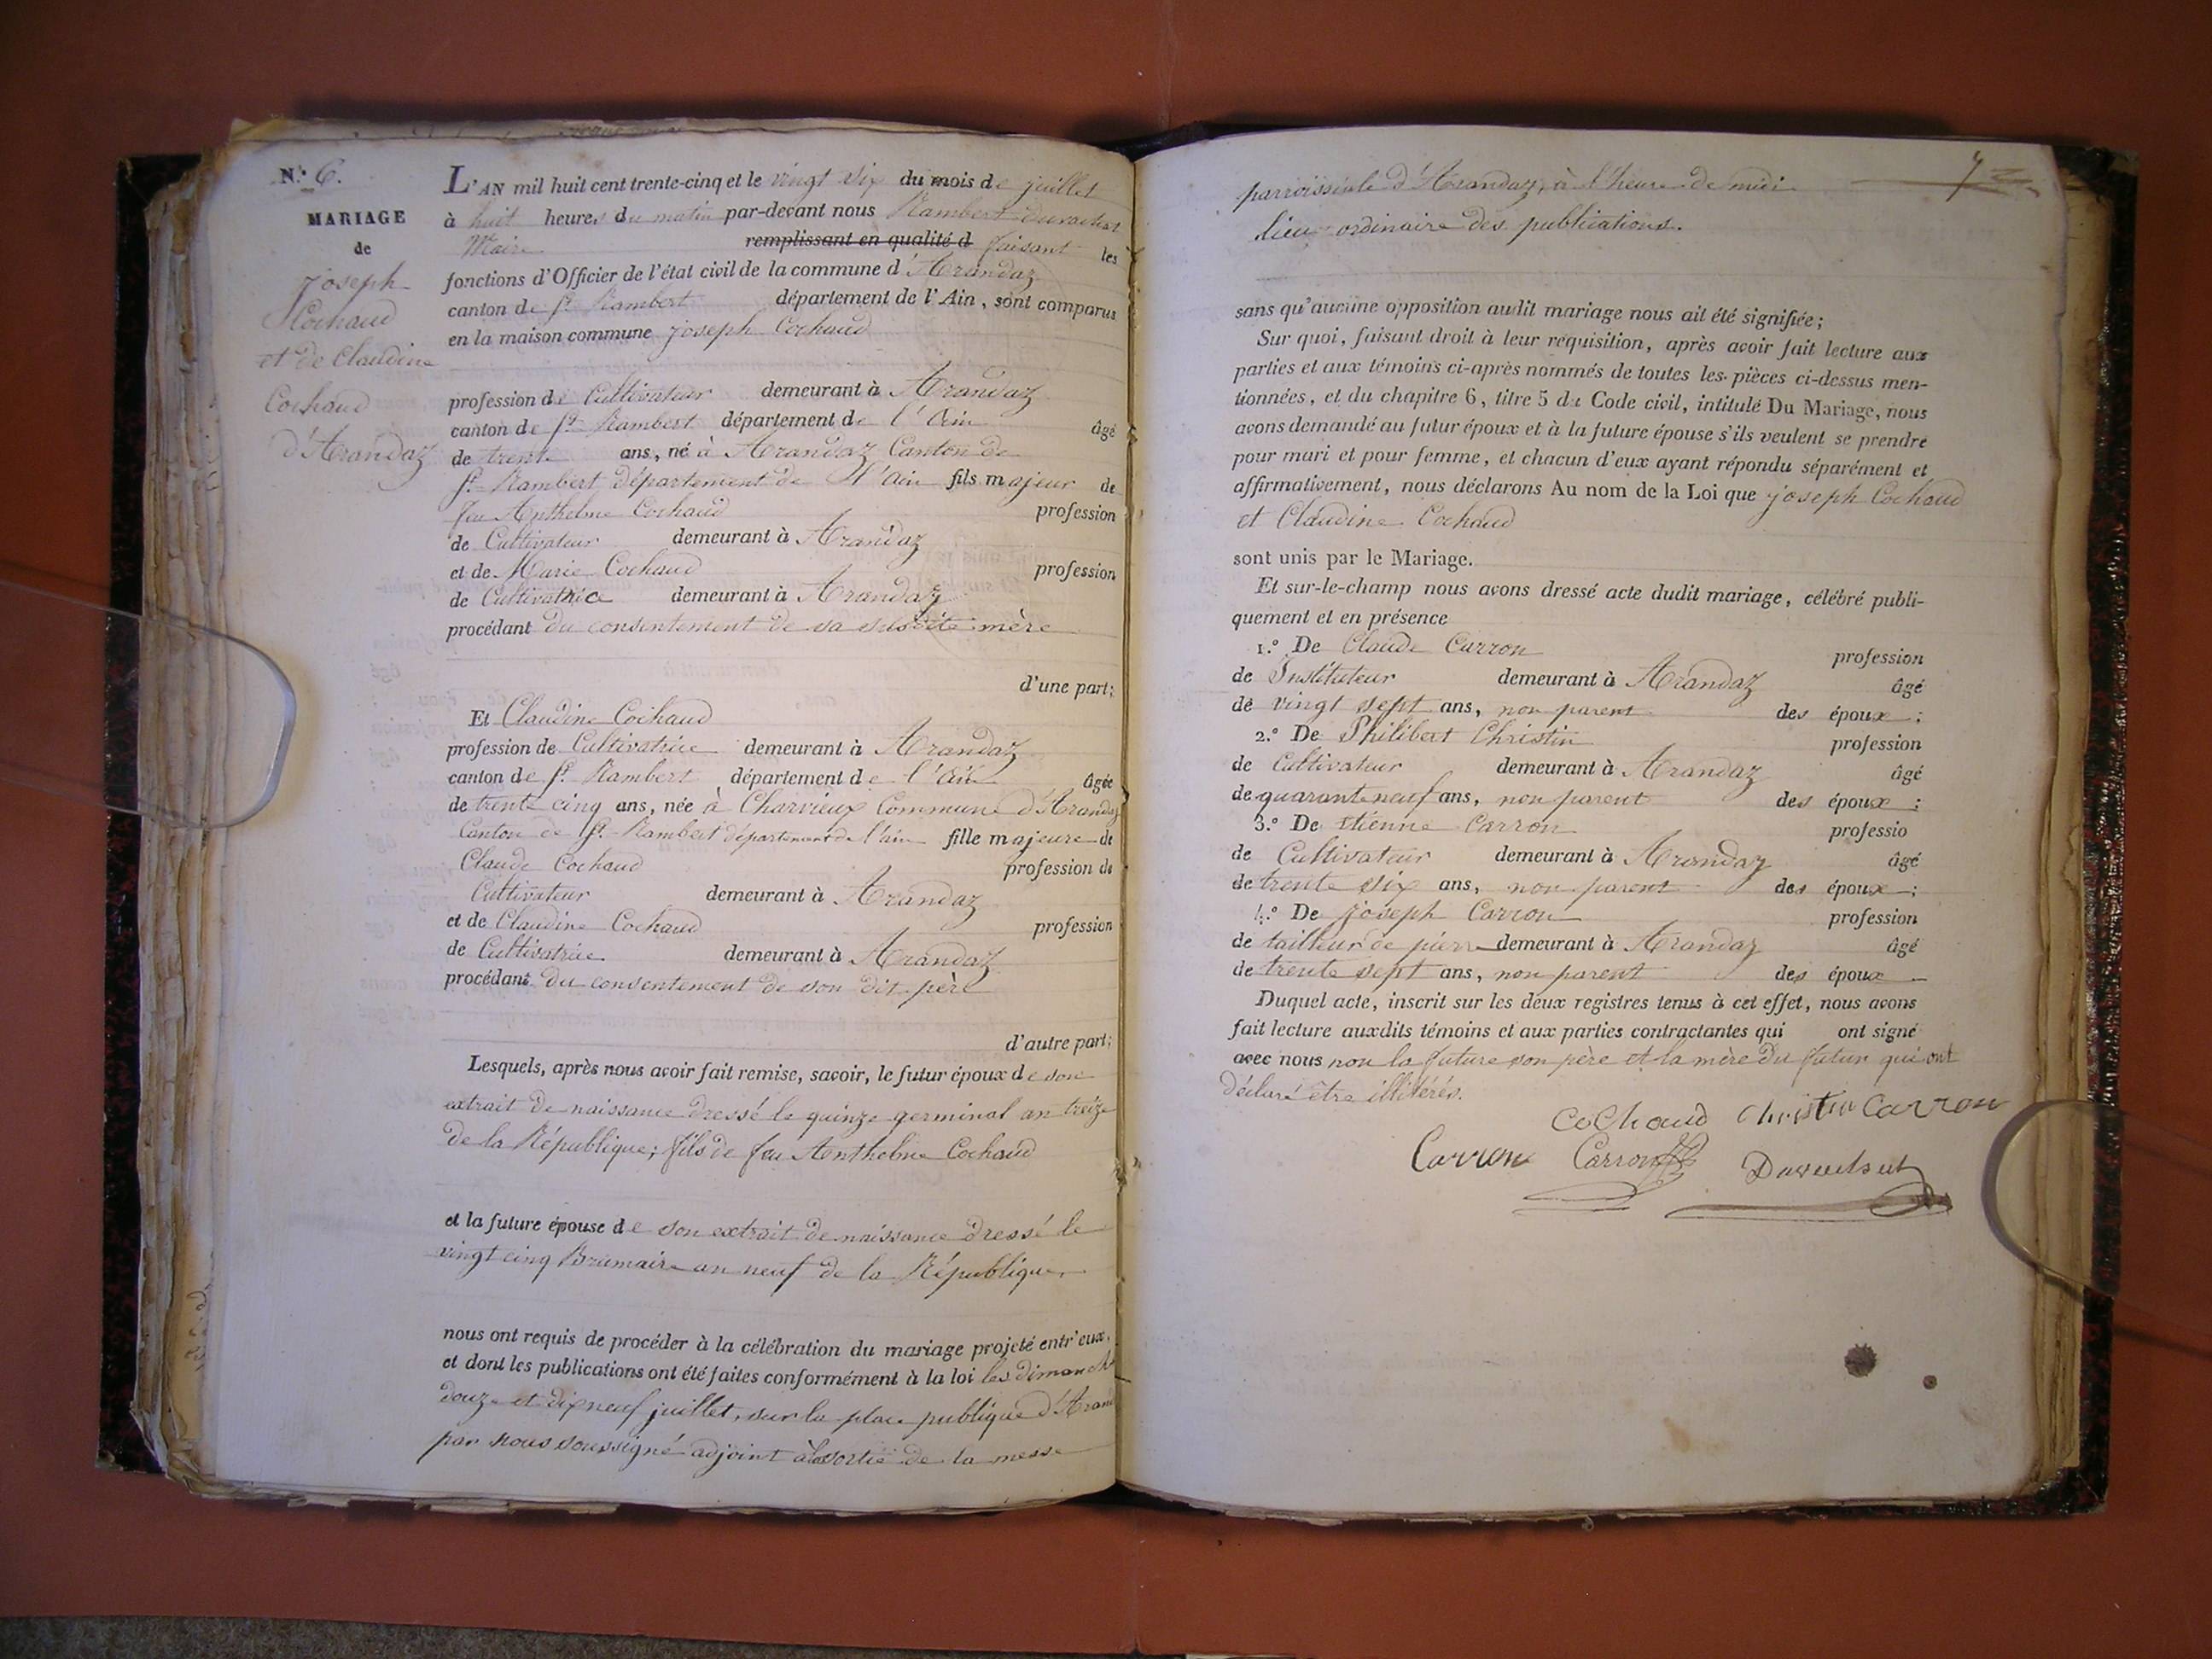 N.º 6.
MARIAGE
de
joseph
Cochaud
et de Claudine
Cochaud
d'Arandaz
L'AN mil huit cent trente-cinq et le vingt six du mois de juillet
à huit heures du matin par-devant nous Rambert
Maire remplissant en qualité d faisant les
fonctions d'Officier de l'état civil de la commune d'Arandaz
canton de St. Rambert département de l'Ain, sont comparus
en la maison commune joseph Cochaud
profession de Cultivateur demeurant à Arandaz
canton de St. Rambert département de l'Ain âgé
de trente ans, né à Arandaz Canton de
St. Rambert département de l'Ain fils majeur de
feu Anthelme Cochaud profession
de Cultivateur demeurant à Arandaz
et de Marie Cochaud profession
de Cultivatrice demeurant à Arandaz
procédant du consentement de sa susdite mère
d'une part;
Et Claudine Cochaud
profession de Cultivatrice demeurant à Arandaz
canton de St. Rambert département de l'Ain âgée
de trente cinq ans, née à Charvieux Commune d'Arandaz
Canton de St. Rambert département de l'ain fille majeure de
Claude Cochaud profession de
Cultivateur demeurant à Arandaz
et de Claudine Cochaud profession
de Cultivatrice demeurant à Arandaz
procédant du consentement de son dit père
d'autre part;
Lesquels, après nous avoir fait remise, savoir, le futur époux de son
extrait de naissance dressé le quinze germinal an treize
de la République; fils de feu Anthelme Cochaud
et la future épouse de son extrait de naissance dressé le
vingt cinq Brumaire an neuf de la République
nous ont requis de procéder à la célébration du mariage projeté entr'eux,
et dont les publications ont été faites conformément à la loi les dimanche
douze et dix neuf juillet, sur la place publique d'Arand
par nous soussigné adjoint à la sortie de la messe
7
parroissiale d'Arandaz, à l'heure de midi
lieu ordinaire des publications.
sans qu'aucune opposition audit mariage nous ait été signifiée;
Sur quoi, faisant droit à leur réquisition, après avoir fait lecture aux
parties et aux témoins ci-après nommés de toutes les pièces ci-dessus men-
tionnées, et du chapitre 6, titre 5 du Code civil, intitulé Du Mariage, nous
avons demandé au futur époux et à la future épouse s'ils veulent se prendre
pour mari et pour femme, et chacun d'eux ayant répondu séparément et
affirmativement, nous déclarons Au nom de la Loi que joseph Cochaud
et Claudine Cochaud
sont unis par le Mariage.
Et sur-le-champ nous avons dressé acte dudit mariage, célébré publi-
quement et en présence
1.º De Claude Carron profession
de Instituteur demeurant à Arandaz âgé
de vingt sept ans, non parent des époux;
2.º De Philibert Christin profession
de Cultivateur demeurant à Arandaz âgé
de quarante neuf ans, non parent des époux;
3.º De Etienne Carron professio
de Cultivateur demeurant à Arandaz âgé
de trente six ans, non parent des époux;
4.º De joseph Carron profession
de tailleur de pierre demeurant à Arandaz âgé
de trente sept ans, non parent des époux
Duquel acte, inscrit sur les deux registres tenus à cet effet, nous avons
fait lecture auxdits témoins et aux parties contractantes qui ont signé
avec nous non la future son père et la mère du futur qui ont
déclaré être illitérés.
Cochaud Christin Carron
Carron Carron